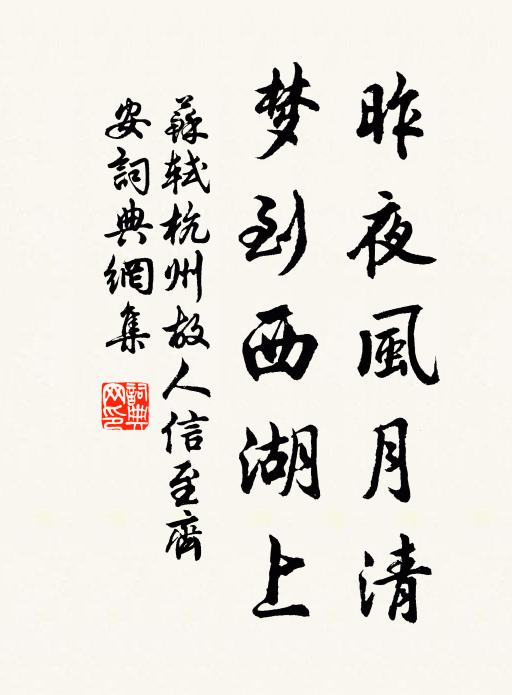 昨夜風月清
梦到西湖上
蘇軾杭州故人信至齊
安詞典網集
詞典
网印